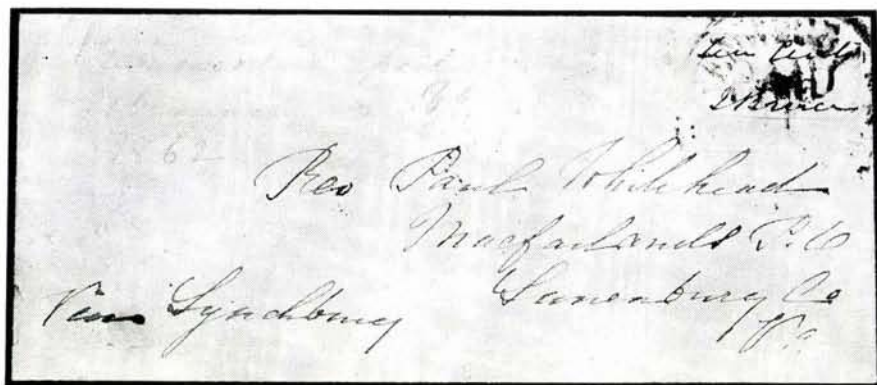 1862
Rev Paul Whitehead
Macfarlands P.O
Lunenburg Co
Va
Via Lynchburg